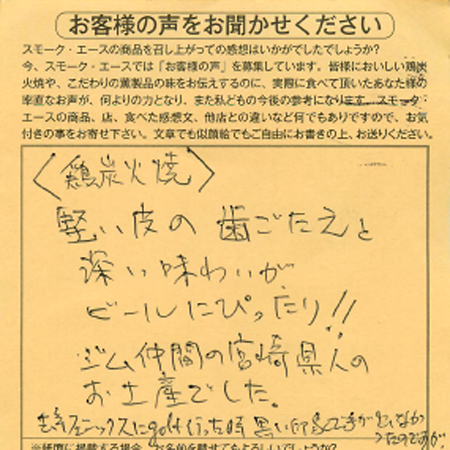 お客様の声をお聞かせください
スモーク・エースの商品を召し上がっての感想はいかがでしたでしょうか?
今、スモーク・エースでは「お客様の声」を募集しています。皆様においしい鶏炭
火焼や、こだわりの薫製品の味をお伝えするのに、実際に食べて頂いたあなた様の
率直なお声が、何よりの力となり、また私どもの今後の参考になります。スモーク
エースの商品、店、食べた感想文、他店との違いなど何でもありですので、お気
付きの事をお寄せ下さい。文章でも似顔絵でもご自由にお書きの上、お送りください。
〈鶏炭火焼〉
堅い皮の歯ごたえと
深い味わいが
ビールにぴったり!!
ジム仲間の宮崎県人の
お土産でした。
フェニックスにgolf行った時
※紙面に掲載する場合、お名前を載せてもよろしいでしょうか?